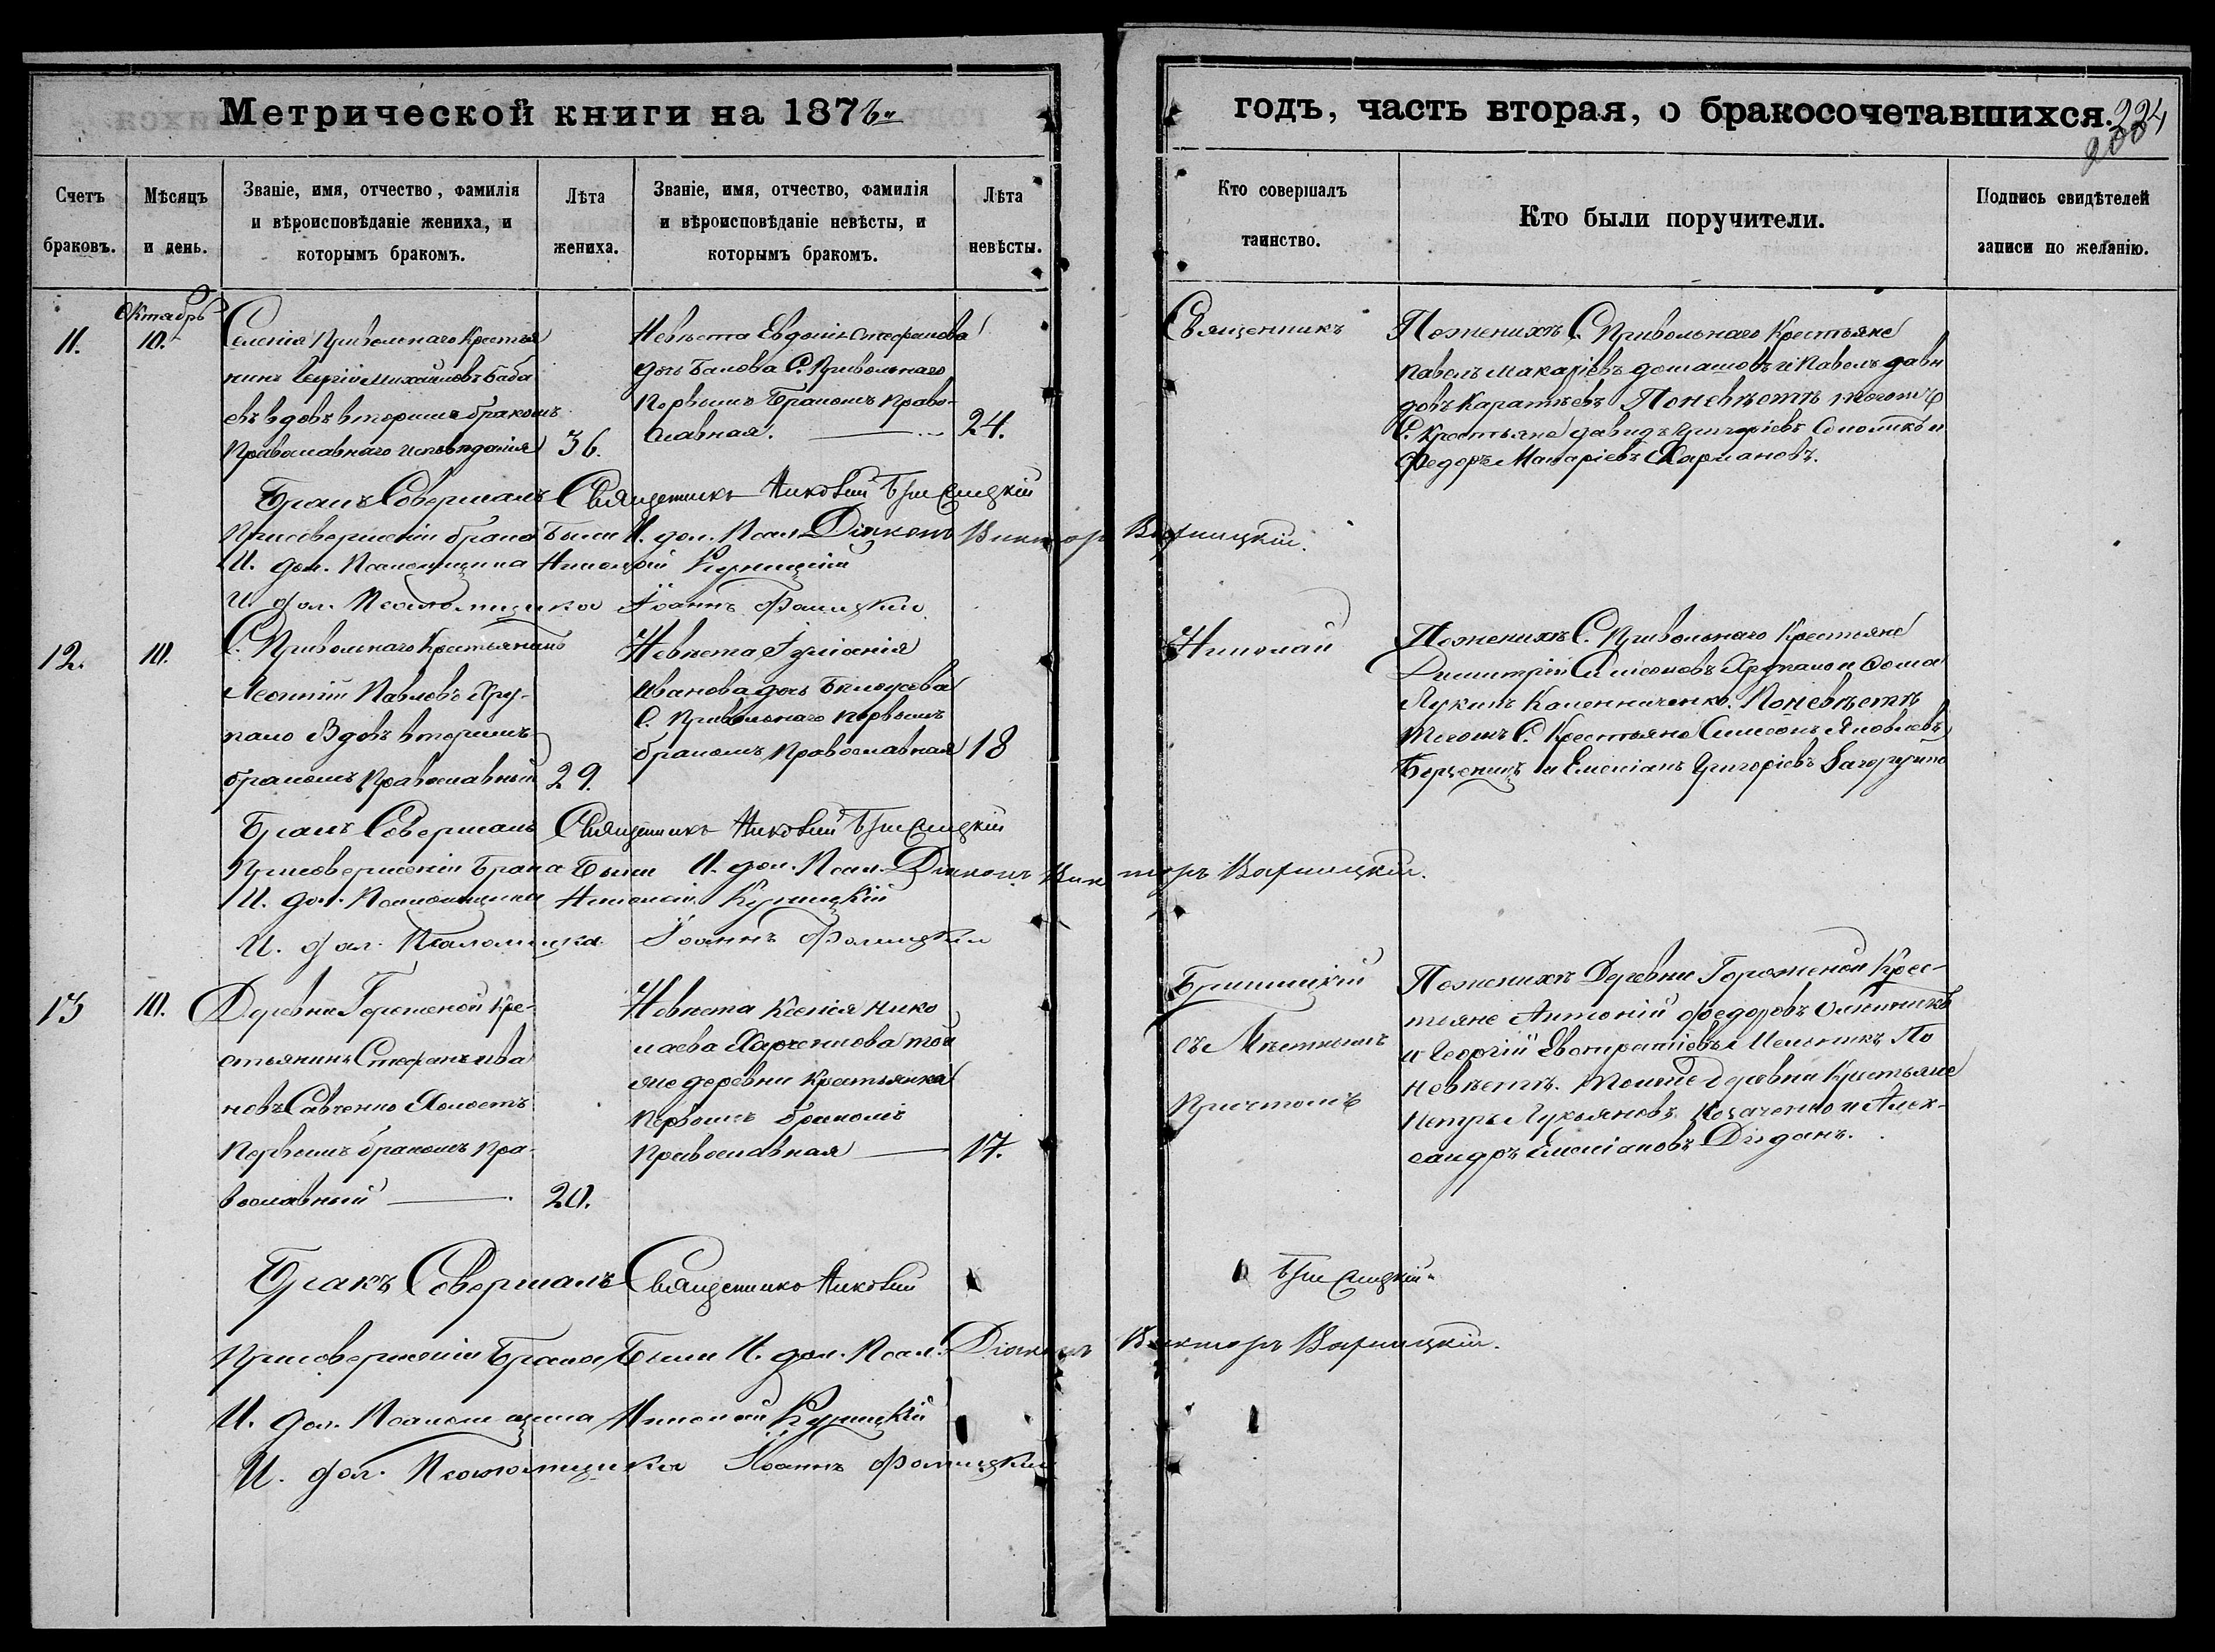 Метрической книги на 1876й
годъ, часть вторая, о бракосочетавшихся.
224
200
Счетъ
браковъ.
Мѣсяцъ
и день.
Званіе, имя, отчество, фамилія
и вѣроисповѣданіе жениха, и
которымъ бракомъ.
Лѣта
жениха.
Званіе, имя, отчество, фамилія
и вѣроисповѣданіе невѣсты, и
которымъ бракомъ.
Лѣта
невѣсты.
Кто совершалъ
таинство.
Кто были поручители.
Подпись свидѣтелей
записи по желанію.
Октябрь
11.
10.
Селенія Привольнаго Крестья
нинъ Сергій Михаиловъ Баба
евъ вдовъ вторымъ бракомъ
Православнаго исповѣданія
36.
Невѣста Евдокія Стефанова
дочь Балова С. Привольнаго
Первымъ Бракомъ Право-
славная.
24.
Священникъ
По женихѣ С. Привольнаго Крестьяне
Павелъ Макаріевъ домашовъ и Павелъ Дави
довъ Каратѣевъ По невѣстѣ тогожъ
С. Крестьяне Давидъ Григоріевъ и
Федоръ Макаріевъ Хармановъ.
Бракъ Совершалъ Священникъ Николай Бришицкій
При совершеніи брака Были И. дол. Псал. Діяконъ Викторъ Варницкій.
И. дол. Псаломщика Николай Куницкій
И. дол. Псаломщика Іоаннъ Фомицкій
12.
10.
С. Привольнаго Крестьянинъ
Леонтій Павловъ Хру-
пало Вдовъ вторымъ
бракомъ Православный
29.
Невѣста Іуліанія
Иванова дочь Билоусова
С. Привольнаго первымъ
бракомъ Православная
18
Николай
По женихѣ С. Привольнаго Крестьяне
Димитрій Симеоновъ Хрупало и Фома
Лукинъ Каленниченко. По невѣстѣ
тогожъ С. Крестьяне Симеонъ Яковлевъ
и Емеліанъ Григоріевъ Загоруйко
Бракъ Совершалъ Священникъ Николай Бришицкій
При совершеніи Брака Были И. дол. Псал. Діяконъ Викторъ Варницкій.
И. дол. Псаломщика Николай Куницкій
И. дол. Псаломщика Іоаннъ Фомицкій
13
10.
Деревни Гороженой Кре-
стьянинъ Стефанъ Ива
новъ Савченко Холостъ
Первымъ бракомъ Пра-
вославный
20.
Невѣста Ксенія Нико
лаева Харченкова той
же деревни Крестьянка
Первымъ бракомъ
Православная
17.
Бришицкій
съ Мѣстнымъ
Причтомъ
По женихѣ Деревни Гороженой Крес-
тьяне Антоній Федоровъ Олейникъ
и Георгій Мельникъ По
невѣстѣ. Тойже Деревни Крестьяне
Петръ Лукьяновъ Козаченко и Алек-
сандръ Емеліановъ Диданъ.
Бракъ Совершалъ Священникъ Николай Бришицкій
При совершеніи Брака Были И. дол. Псал. Діяконъ Викторъ Варницкій.
И. дол. Псаломщика Николай Куницкій
И. дол. Псаломщика Іоаннъ Фомицкій